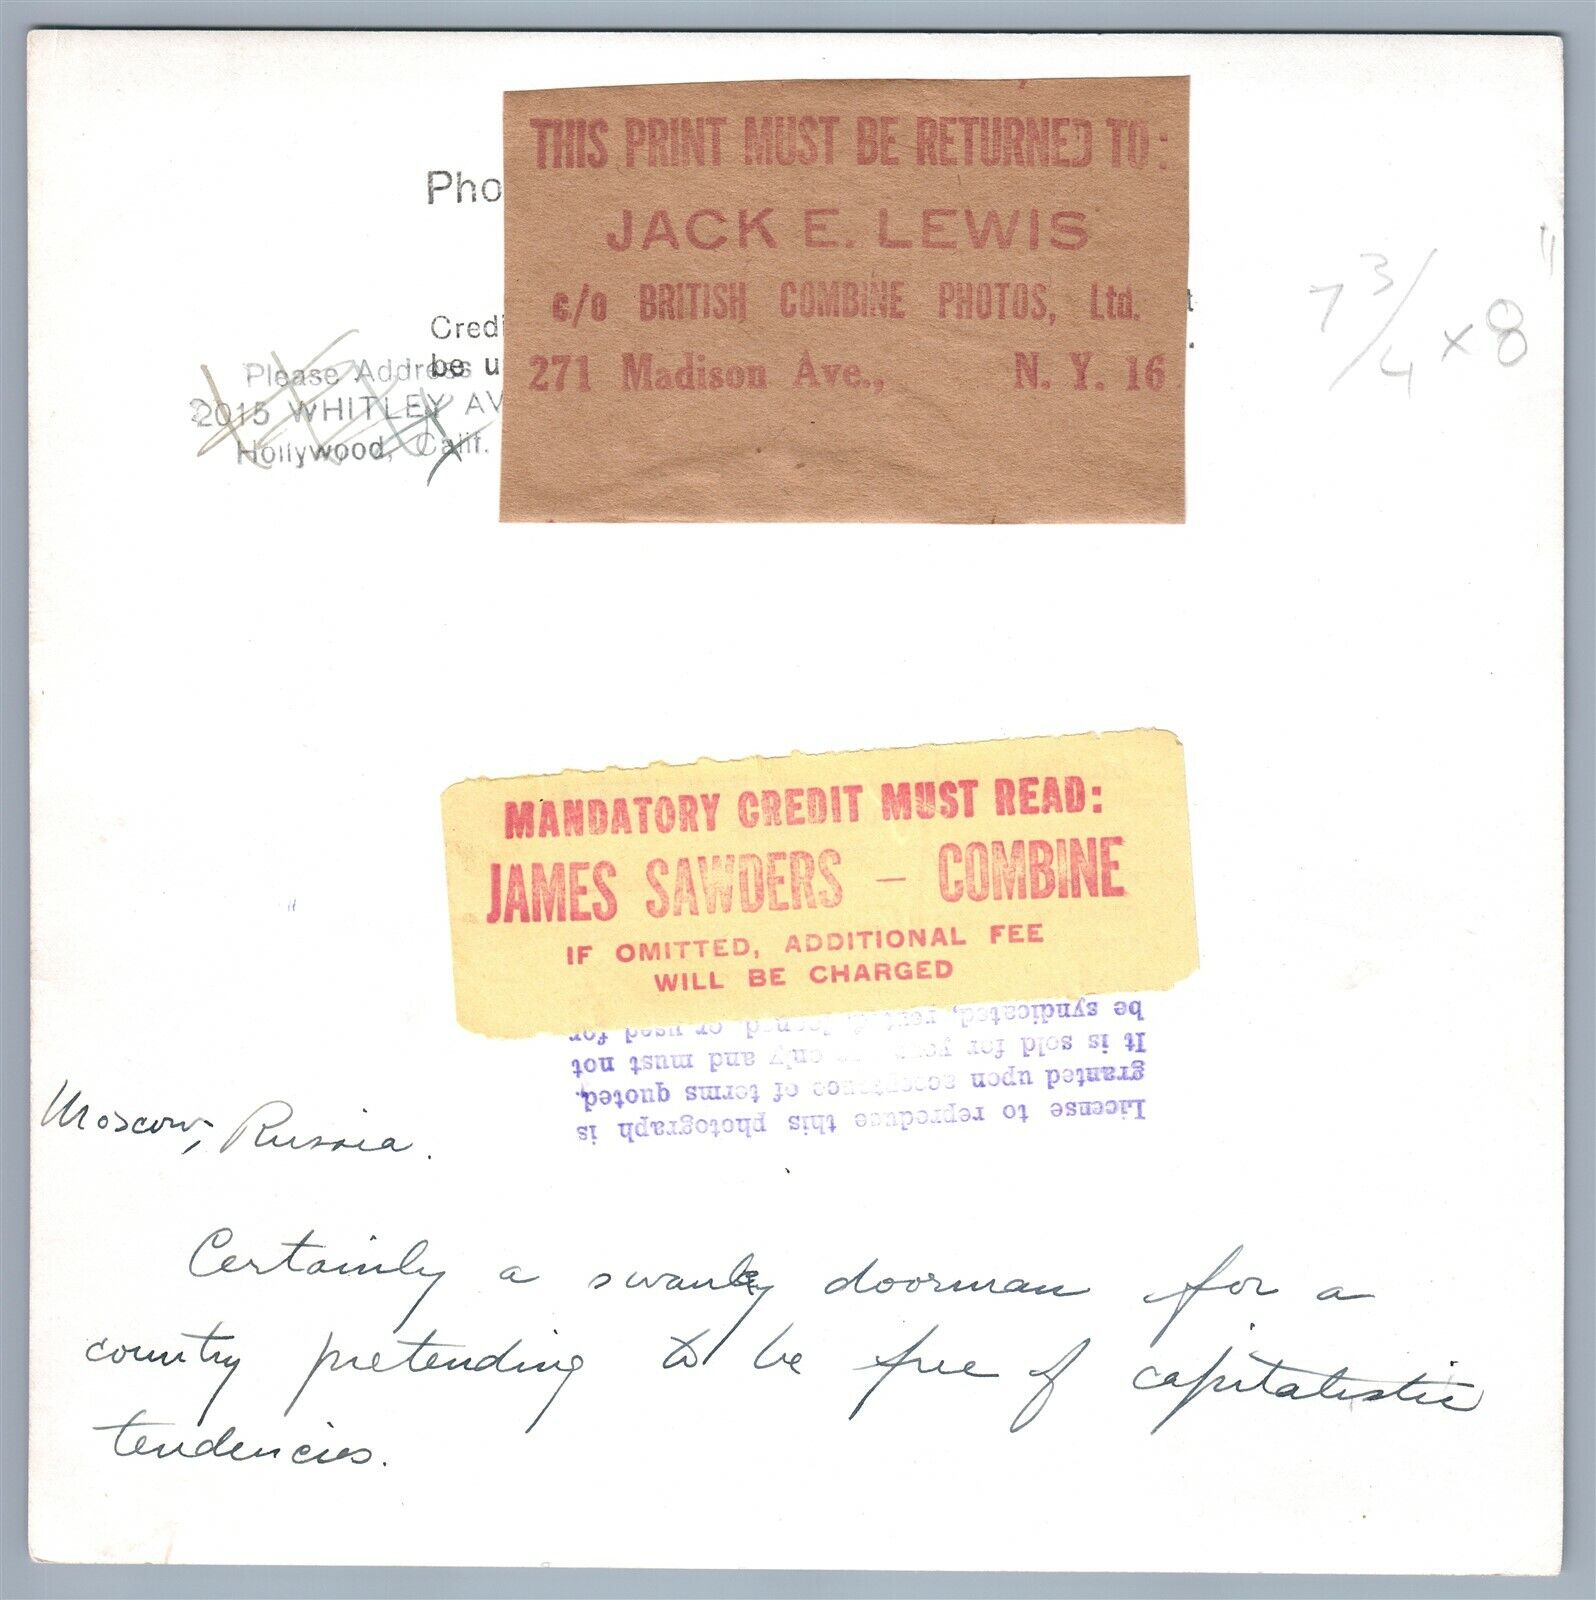 THIS PRINT MUST BE RETURNED TO:
Pho
JACK E. LEWIS
c/o BRITISH COMBINE PHOTOS, Ltd.
271 Madison Ave., N. Y. 16
Credi
be u
Please Address
2015 WHITLEY AV
Hollywood, Calif.
7 3/4 x 8"
MANDATORY CREDIT MUST READ:
JAMES SAWDERS – COMBINE
IF OMITTED, ADDITIONAL FEE
WILL BE CHARGED
License to reproduce this photograph is
granted upon acceptance of terms quoted.
It is sold for your only and must not
be syndicated, loaned or used for
Moscow, Russia.
Certainly a swanky doorman for a
country pretending to be free of capitalistic
tendencies.